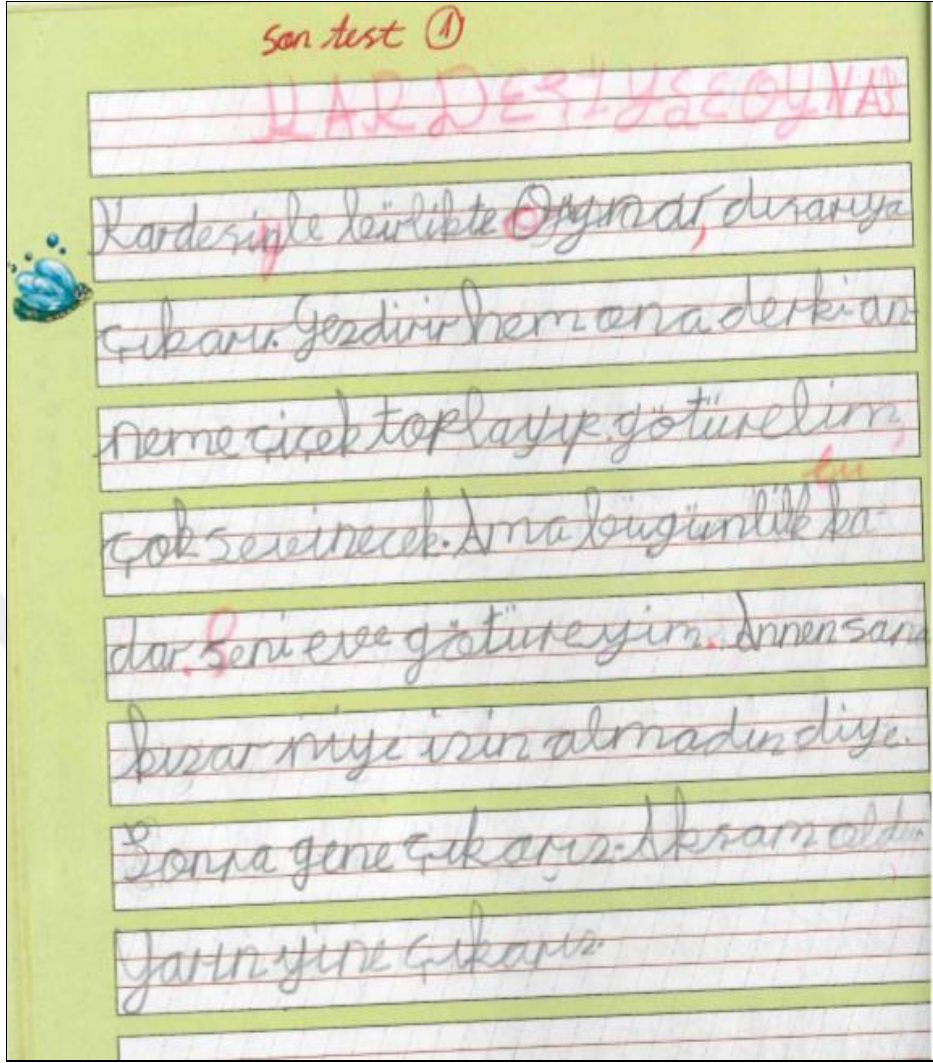 son test 1
KARDEŞİYLE OYNAR
Kardesiyle birlikte Oynar, dısarıya
çıkarır. Gezdirir hem ona derki an-
neme çiçek toplayıp götürelim,
bu
çok sevinecek. Ama bügünlük ka-
dar. Seni eve götüreyim. Annen sana
kızar niye izin almadın diye.
Sonra gene çıkarız. Aksam oldu
Yarın yine çıkarız.